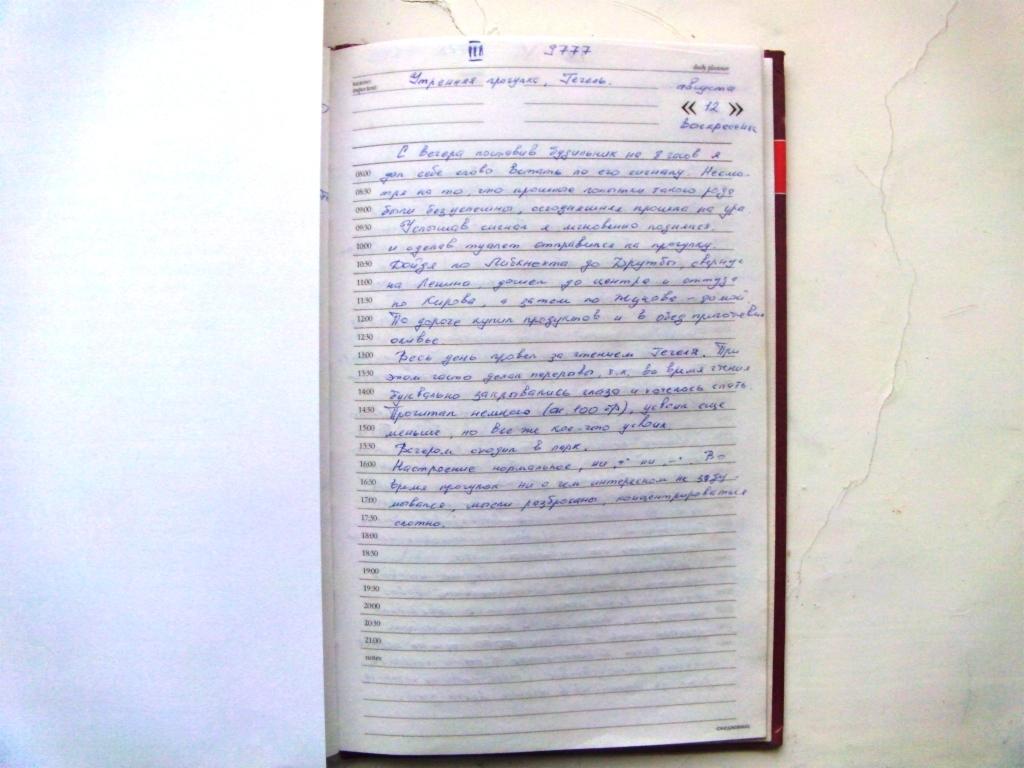 III 9777
daily planner
Утренняя прогулка, Гегель.
августа
« 12 »
Воскресенье
С вечера поставив будильник на 8 часов я
08:00 дал себе слово встать по его сигналу. Несмо-
08:30 тря на то, что прошлые попытки такого рода
09:00 были безуспешны, сегодняшняя прошла на ура.
09:30 Услышав сигнал я мгновенно поднялся
10:00 и сделав туалет отправился на прогулку.
10:30 Дойдя по Либкнехта до Дружбы, свернул
11:00 на Ленина, дошел до центра и оттуда
11:30 по Кирова, а затем по Жукова – домой.
12:00 По дороге купил продуктов и в обед приготовил
12:30 оливье.
13:00 Весь день провел за чтением Гегеля. При
13:30 этом часто делал перерывы т.к. во время чтения
14:00 буквально закрывались глаза и хотелось спать.
14:30 Прочитал немного (ок. 100 стр), усвоил еще
15:00 меньше, но все же кое-что усвоил.
15:30 Вечером сходил в парк.
16:00 Настроение нормальное, ни „+“ ни „–“. Во
16:30 время прогулок ни о чем интересном не заду-
17:00 мывался, мысли разбросаны, концентрироваться
17:30 сложно.
18:00
18:30
19:00
19:30
20:00
20:30
21:00
notes
ежедневник